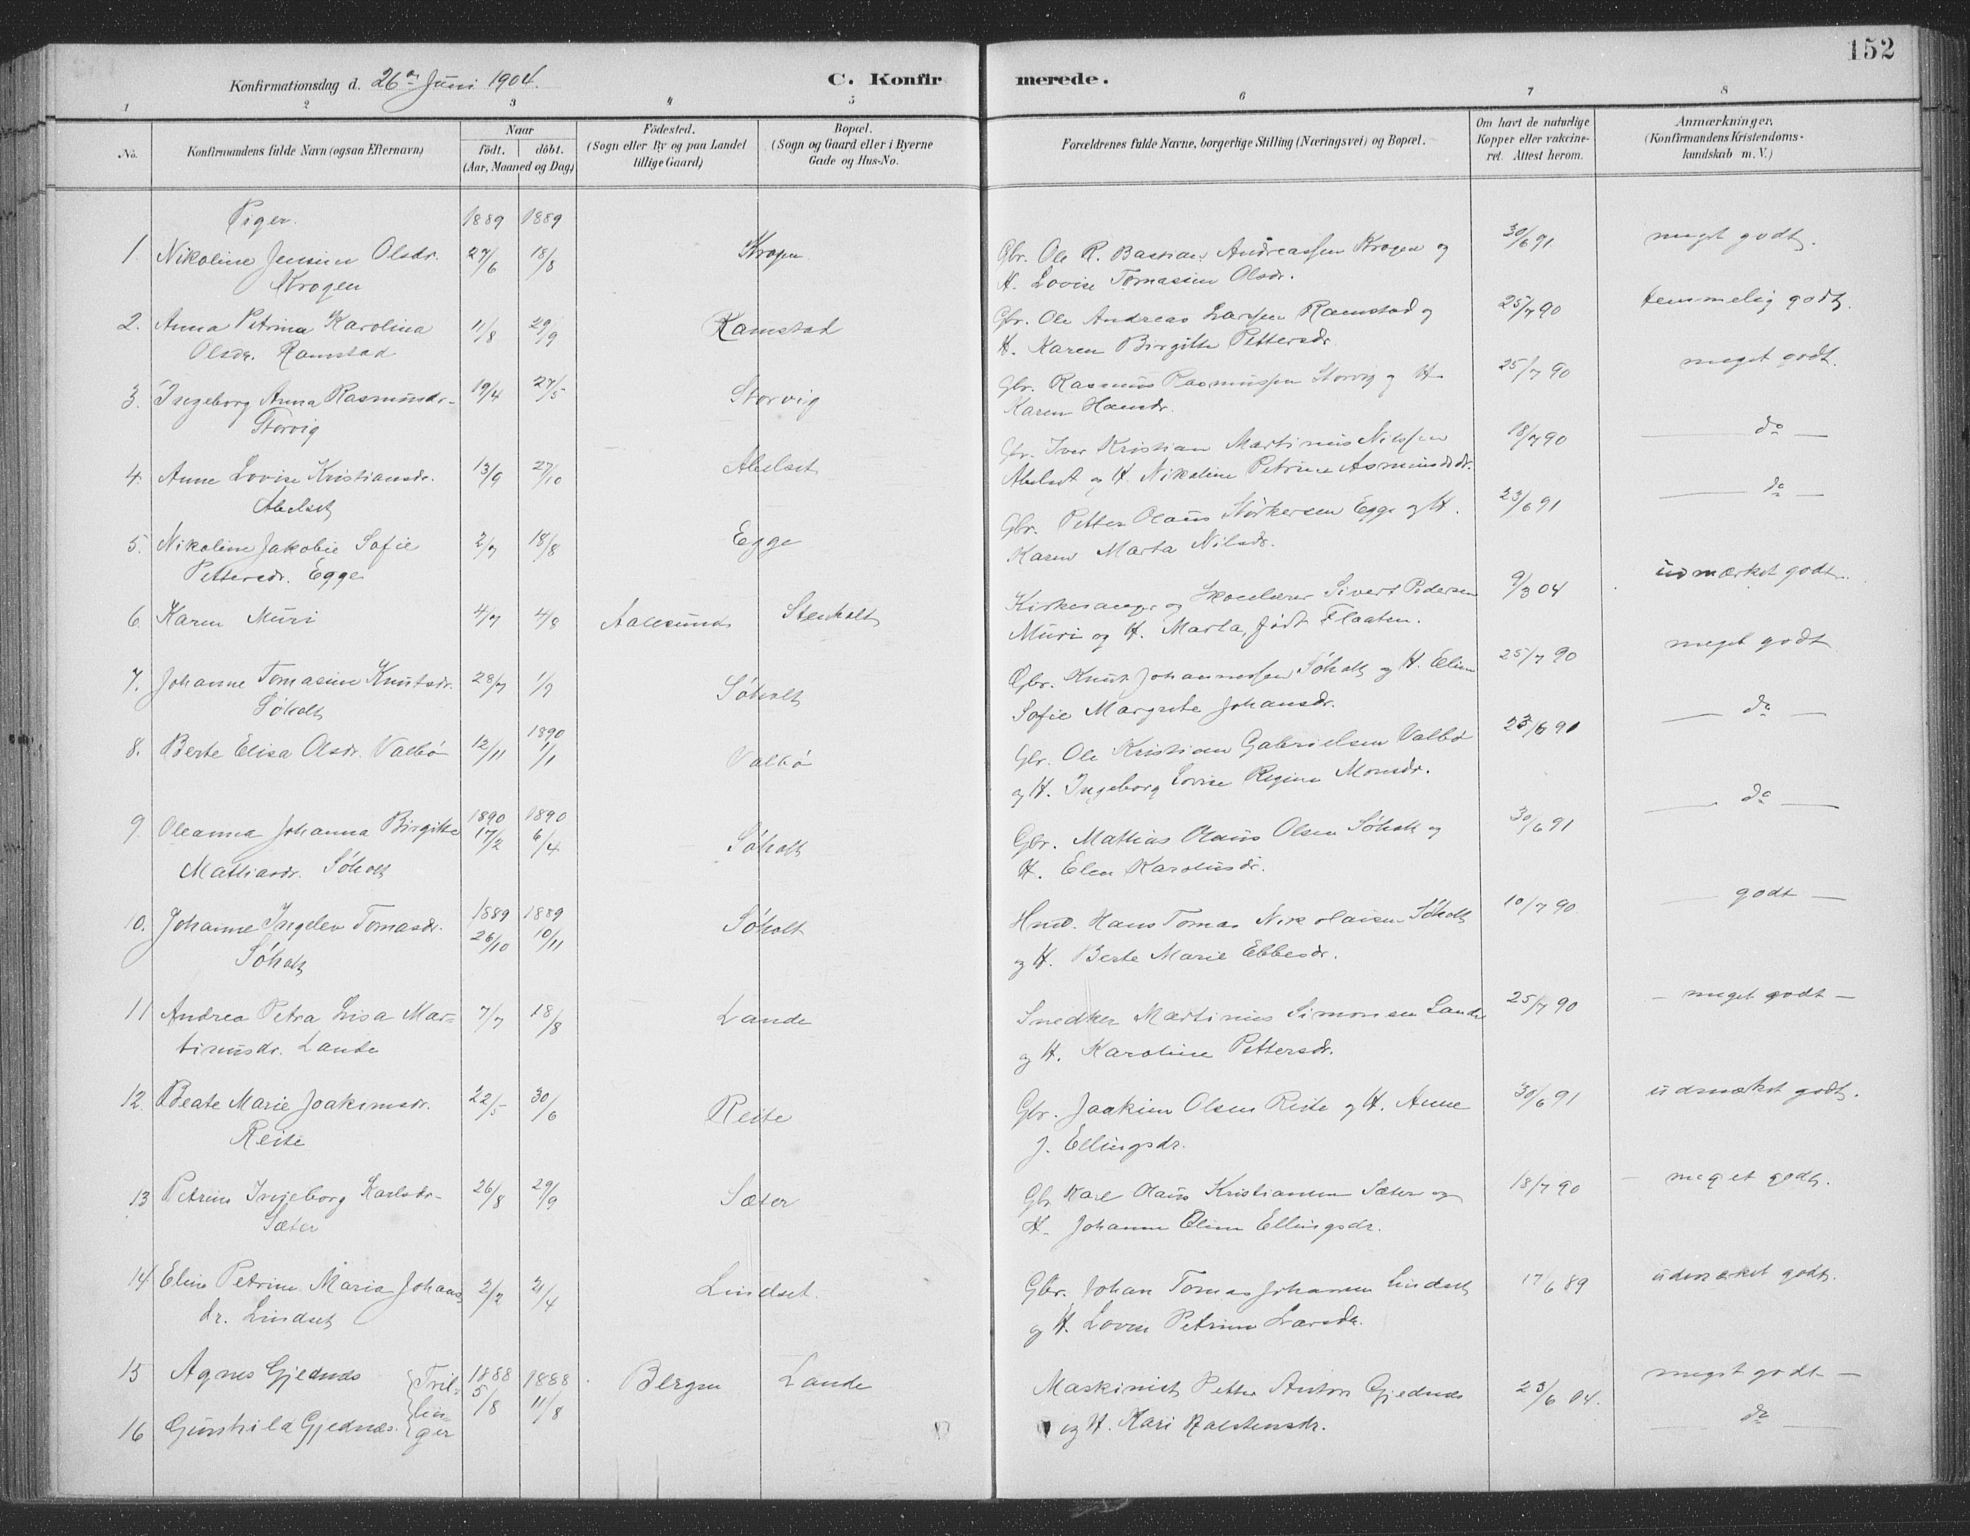 152
Konfirmationsdag d. 26de Juni 1904.
C. Konfirmerede.
1 2 3 4 5 6 7 8
No.
Konfirmandens fulde Navn (ogsaa Efternavn)
Naar
født. døbt.
(Aar, Maaned og Dag)
Fødested.
(Sogn eller By og paa Landet
tillige Gaard)
Bopæl.
(Sogn og Gaard eller i Byerne
Gade og Hus-No.
Forældrenes fulde Navne, borgerlige Stilling (Næringsvei) og Bopæl.
Om havt de naturlige
Kopper eller vakcine-
ret. Attest herom.
Anmærkninger.
(Konfirmandens Kristendoms-
kundskab m. V.)
Piger. 1889 1889
1. Nikoline Jensine Olsdr. 27/6 18/8 Krogen Gbr. Ole R. Bastian Andreassen Krogen og 30/6 91 meget godt.
Krogen H. Lovise Tomasine Olsdr.
2. Anna Petrina Karolina 11/8 29/9 Ramstad Gbr. Ole Andreas Larssen Ramstad og 25/7 90 temmelig godt.
Olsdr. Ramstad H. Karen Birgitte Pettersdr.
3. Ingeborg Anna Rasmusdr. 19/4 27/5 Storvig Gbr. Rasmus Rasmussen Storvig og H. 25/7 90 meget godt.
Storvig Karen Hansdr.
4. Anne Lovise Kristiansdr. 13/9 27/10 Abelset Gbr. Iver Kristian Martinus Nilssen 18/7 90 — do —
Abelset Abelset og H. Nikoline Petrine Asmundsdr.
5. Nikoline Jakobie Sofie 2/7 18/8 Egge Gbr. Petter Olaus Størkersen Egge og H. 23/6 91 — do —
Pettersdr. Egge Karen Marta Nilsdr.
6. Karen Muri 4/7 4/8 Aalesund Stenholt Kirkesanger og Skolelærer Sivert Pedersen 9/3 04 udmærket godt.
Muri og H. Marta, født Flaaten.
7. Johanne Tomasine Knutsdr. 28/7 1/9 Søholt Gbr. Knut Johannessen Søholt og H. Eline 25/7 90 meget godt
Søholt Sofie Margrete Johansdr.
8. Berte Elisa Olsdr. Valbø 12/11 1890 1/1 Valbø Gbr. Ole Kristian Gabrielsen Valbø 23/6 91 — do —
og H. Ingeborg Lovise Regine Monsdr.
9. Oleanna Johanna Birgitte 1890 17/2 1890 6/4 Søholt Gbr. Mathias Olaus Olsen Søholt og 30/6 91 — do —
Mathiasdr. Søholt H. Elen Karolusdr.
10. Johanne Ingelev Tomasdr. 1889 26/10 1889 10/11 Søholt Hmd. Hans Tomas Nikolaisen Søholt 10/7 90 — godt —
Søholt og H. Berte Marie Ebbesdr.
11 Andrea Petra Lisa Mar- 7/7 18/8 Lande Snedker Martinus Simonsen Lande 25/7 90 — meget godt —
tinusdr. Lande og H. Karoline Pettersdr.
12. Beate Marie Joakimsdr. 22/5 30/6 Reite Gbr. Joakim Olsen Reite og H. Anne 30/6 91 udmærket godt.
Reite J. Ellingsdr.
13 Petrine Ingeborg Karlsdr. 26/8 29/9 Sæter Gbr Karl Olaus Kristiansen Sæter og 18/7 90 — meget godt.
Sæter H. Johanne Oline Ellingsdr.
14 Eline Petrine Maria Johans- 2/2 21/4 Lindset. Gbr. Johan Tomas Johansen Lindset 17/6 89 udmærket godt.
dr. Lindset og H. Lovise Petrine Larsdr.
15 Agnes Gjednæs {Tril- 1888 5/8 1888 11/8 Bergen Lande Maskinist Petter Anton Gjednæs 23/6 04. meget godt —
{lin-
16 Gunhila Gjednæs. {ger og H. Kari Halstensdr. — do —